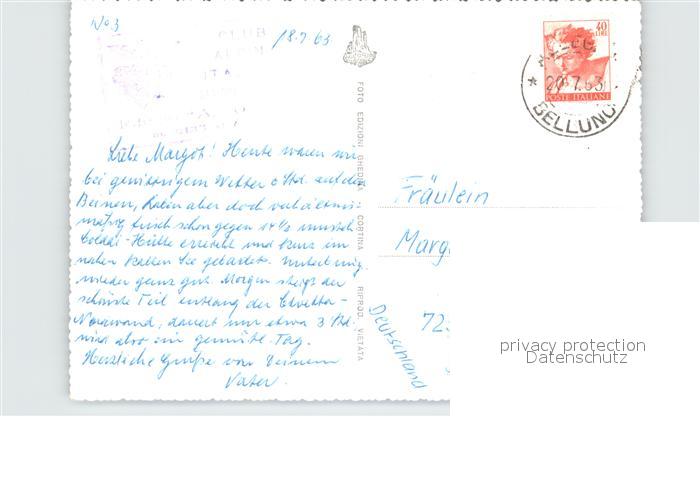 No 3
18.7.63
CLUB
ALPIN
ITA
40
LIRE
POSTE ITALIANE
20 7.63
BELLUNO
FOTO EDIZIONI GHEDINA CORTINA RIPROD. VIETATA
Liebe Margot! Heute waren wir
bei gewittrigem Wetter 6 Std. auf den
Beinen, haben aber doch verhältnis-
mäßig frisch schon gegen 14½ unsere
Coldai-Hütte erreicht und kurz im
nahen kalten See gebadet.
wieder ganz gut. Morgen steigt der
schönste Teil entlang der Civetta-
Nordwand, dauert nur etwa 3 Std.
wird also ein gemütl. Tag.
Herzliche Grüße von Deinem
Vater.
Fräulein
Marg
72
Deutschland
privacy protection
Datenschutz